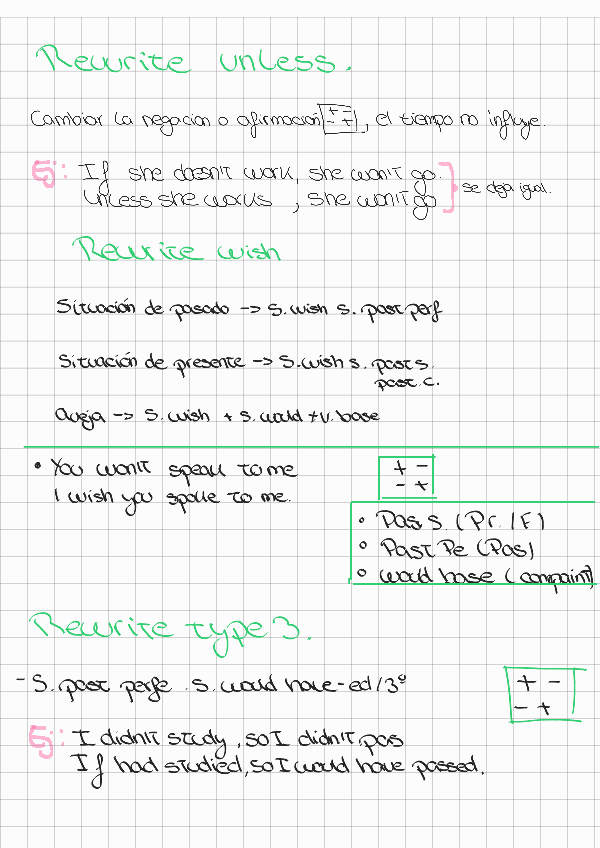 Rewrite unless.
Cambiar la negacion o afirmacion + - - +, el tiempo no influye.
Ej: If she doesn't work, she won't go.
Unless she works, she won't go
se deja igual.
Rewrite wish
Situación de pasado -> S. wish s. past perf
Situación de presente -> S. wish s. past s.
past c.
Queja -> S. wish + s. would + v. base
• You won't speak to me
I wish you spoke to me.
+ -
- +
• Pas s. (Pr. / F)
• Past Pe (Pas)
• would base (compaint)
Rewrite type 3.
- S. past perfe. S. would have-ed / 3º
+ -
- +
Ej: I didn't study, so I didn't pas
If had studied, so I would have passed.